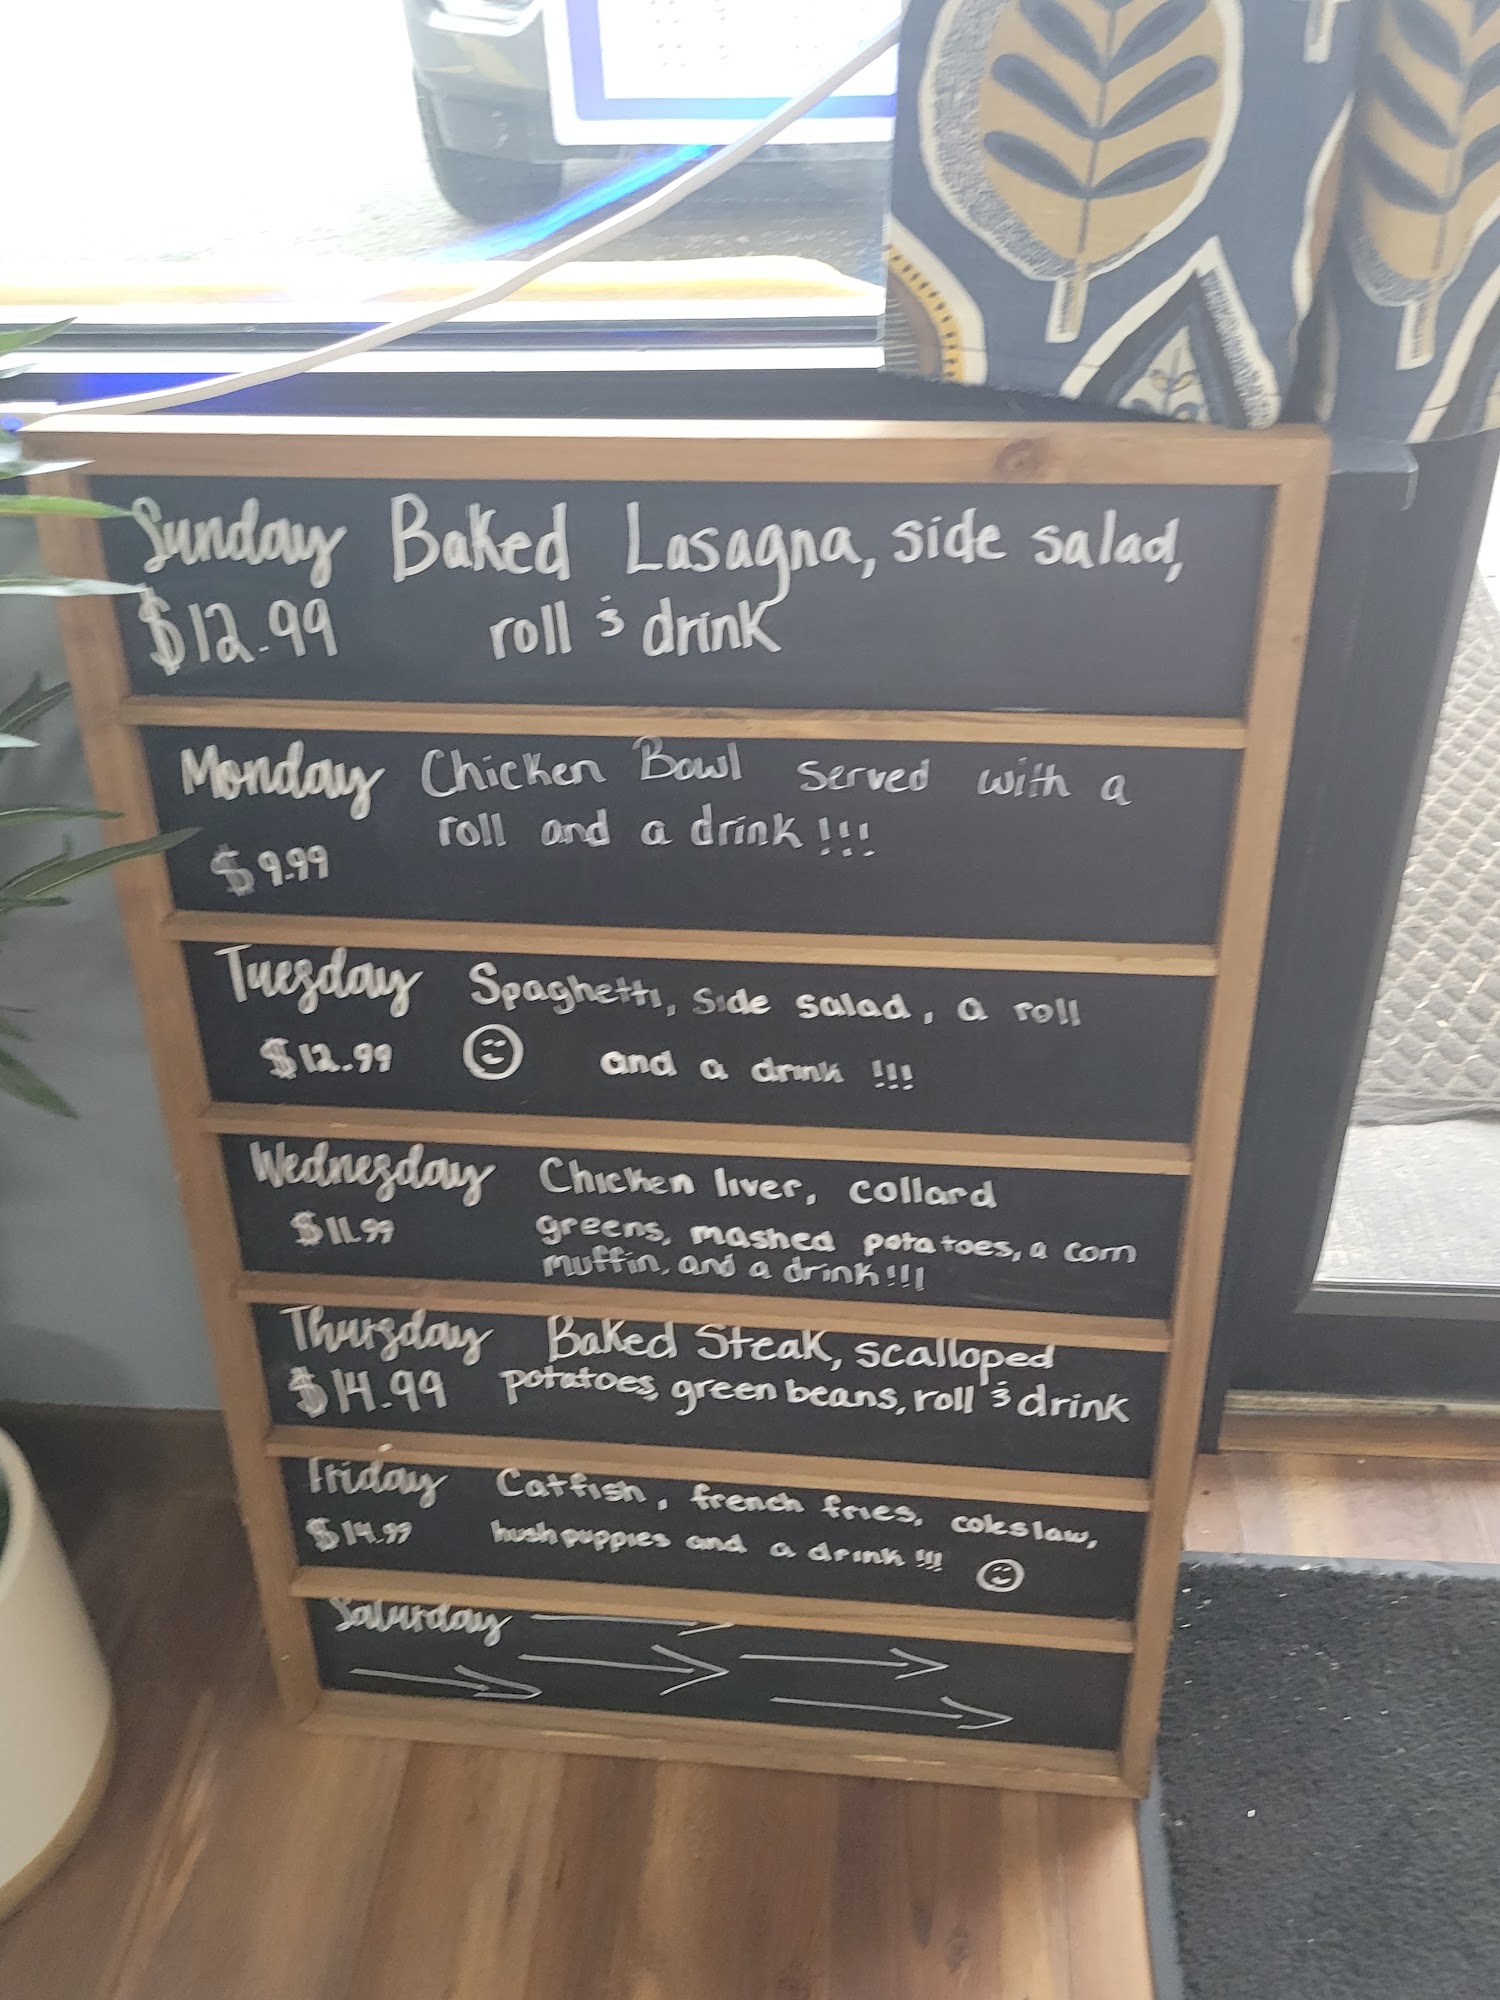 Sunday Baked Lasagna, side salad,
$12.99 roll & drink
Monday Chicken Bowl served with a
roll and a drink!!!
$9.99
Tuesday Spaghetti, side salad, a roll
$12.99 and a drink !!!
Wednesday Chicken liver, collard
$11.99 greens, mashed potatoes, a corn
muffin, and a drink!!!
Thursday Baked Steak, scalloped
$14.99 potatoes, green beans, roll & drink
Friday Catfish, french fries, coleslaw,
$14.99 hushpuppies and a drink!!!
Saturday